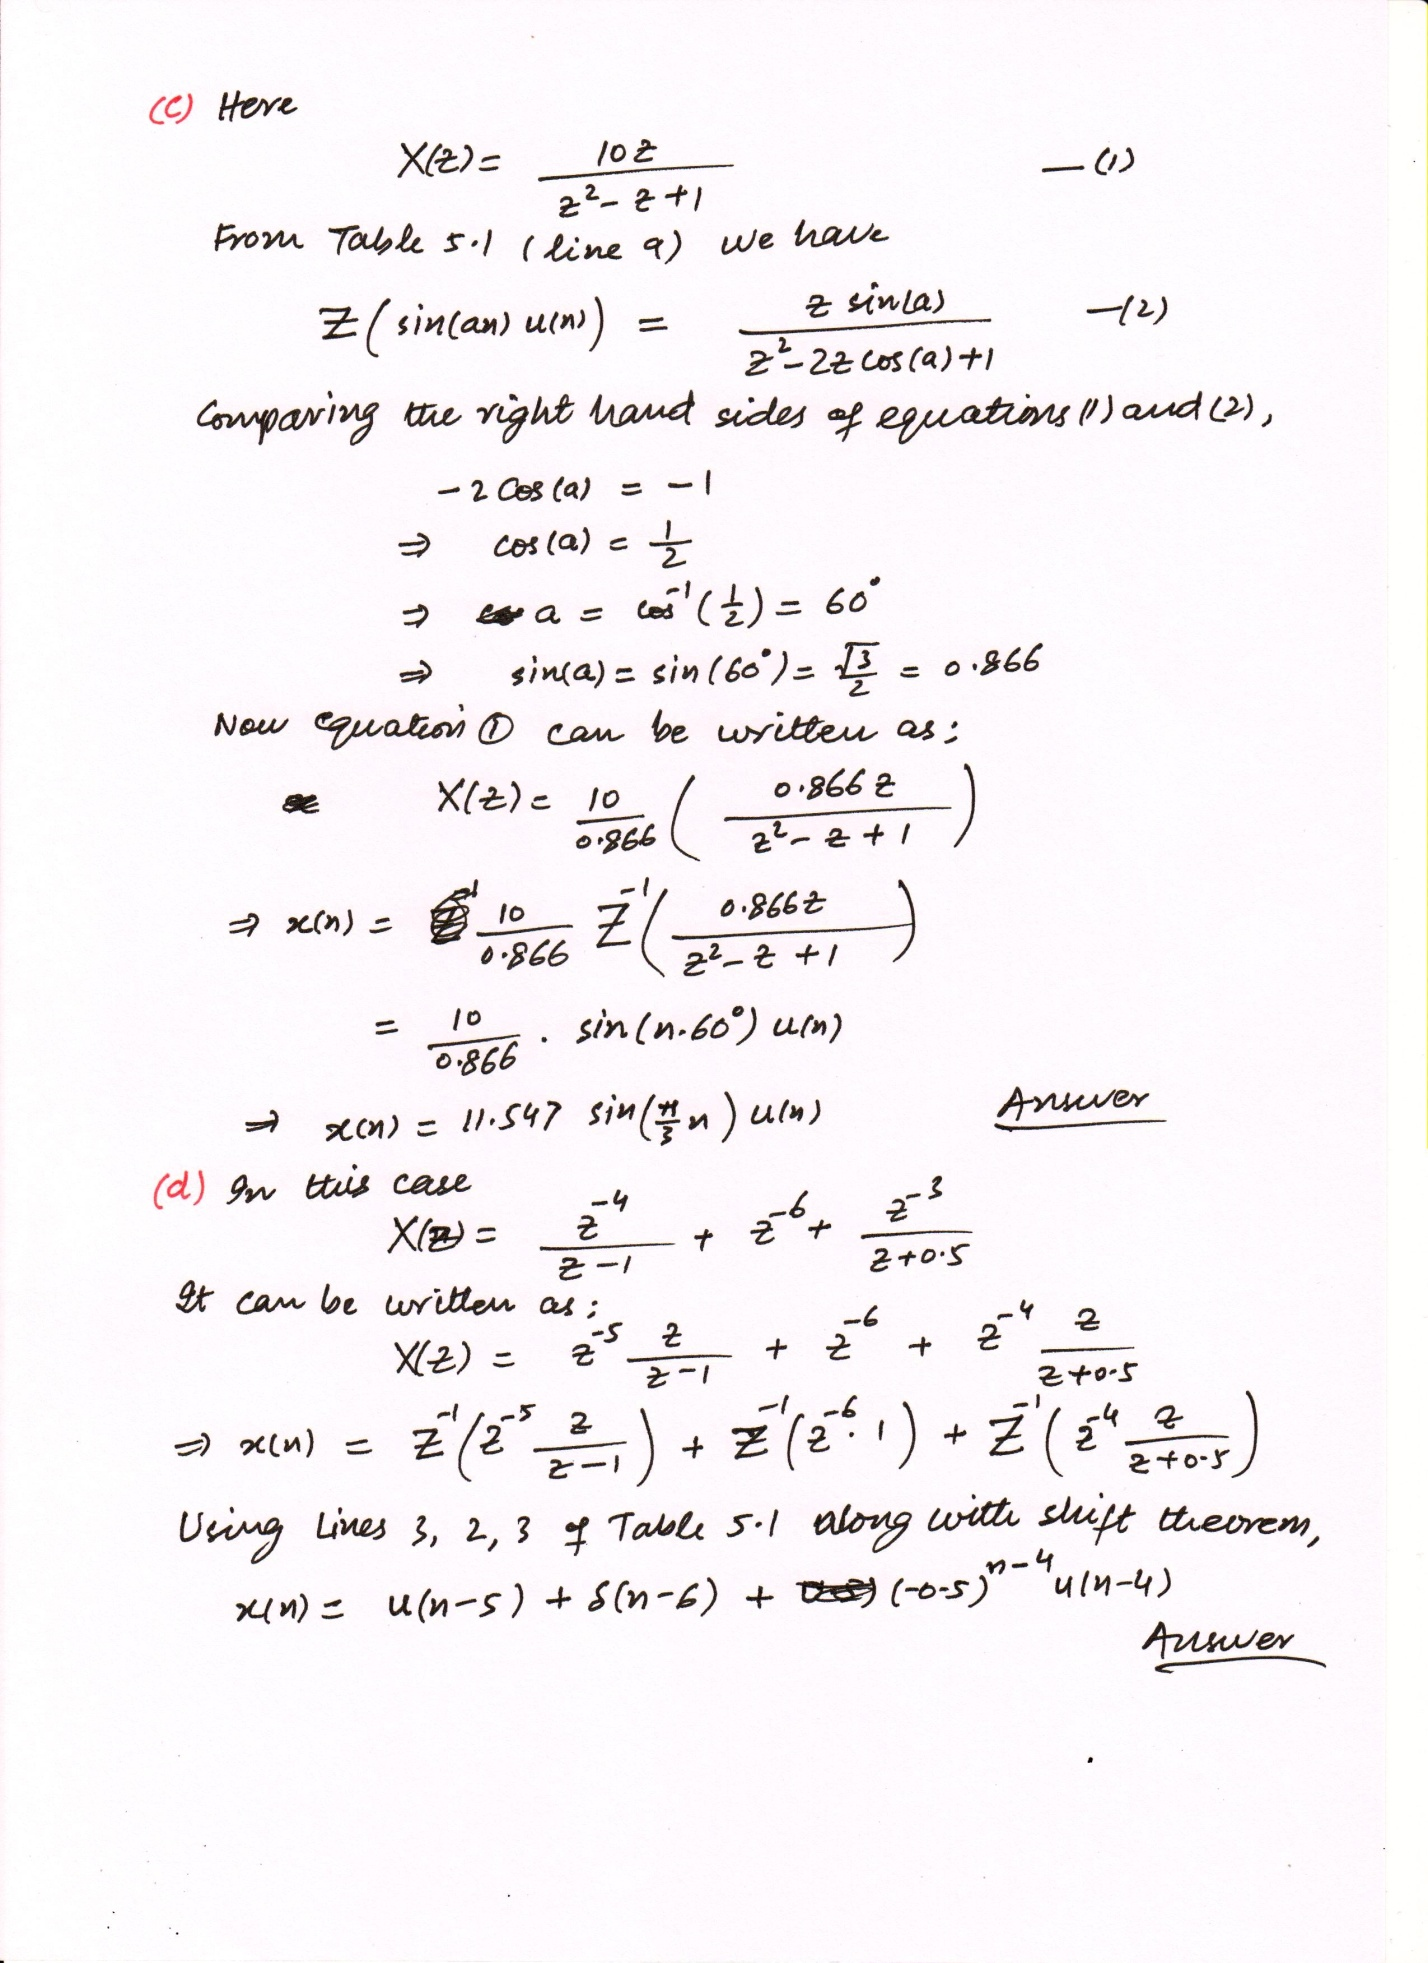 (c) Here
X(z) = 10z / (z² - z + 1) — (1)
From Table 5.1 (line 9) we have
Z(sin(an) u(n)) = z sin(a) / (z² - 2z cos(a) + 1) — (2)
Comparing the right hand sides of equations (1) and (2),
-2 cos(a) = -1
⇒ cos(a) = 1/2
⇒ a = cos⁻¹(1/2) = 60°
⇒ sin(a) = sin(60°) = √3/2 = 0.866
Now equation ① can be written as;
X(z) = 10/0.866 (0.866z / (z² - z + 1))
⇒ x(n) = 10/0.866 Z⁻¹(0.866z / (z² - z + 1))
= 10/0.866 . sin(n.60°) u(n)
⇒ x(n) = 11.547 sin(π/3 n) u(n) Answer
(d) In this case
X(z) = z⁻⁴/(z-1) + z⁻⁶ + z⁻³/(z+0.5)
It can be written as;
X(z) = z⁻⁵ z/(z-1) + z⁻⁶ + z⁻⁴ z/(z+0.5)
⇒ x(n) = Z⁻¹(z⁻⁵ z/(z-1)) + Z⁻¹(z⁻⁶.1) + Z⁻¹(z⁻⁴ z/(z+0.5))
Using Lines 3, 2, 3 of Table 5.1 along with shift theorem,
x(n) = u(n-5) + δ(n-6) + (-0.5)ⁿ⁻⁴ u(n-4)
Answer